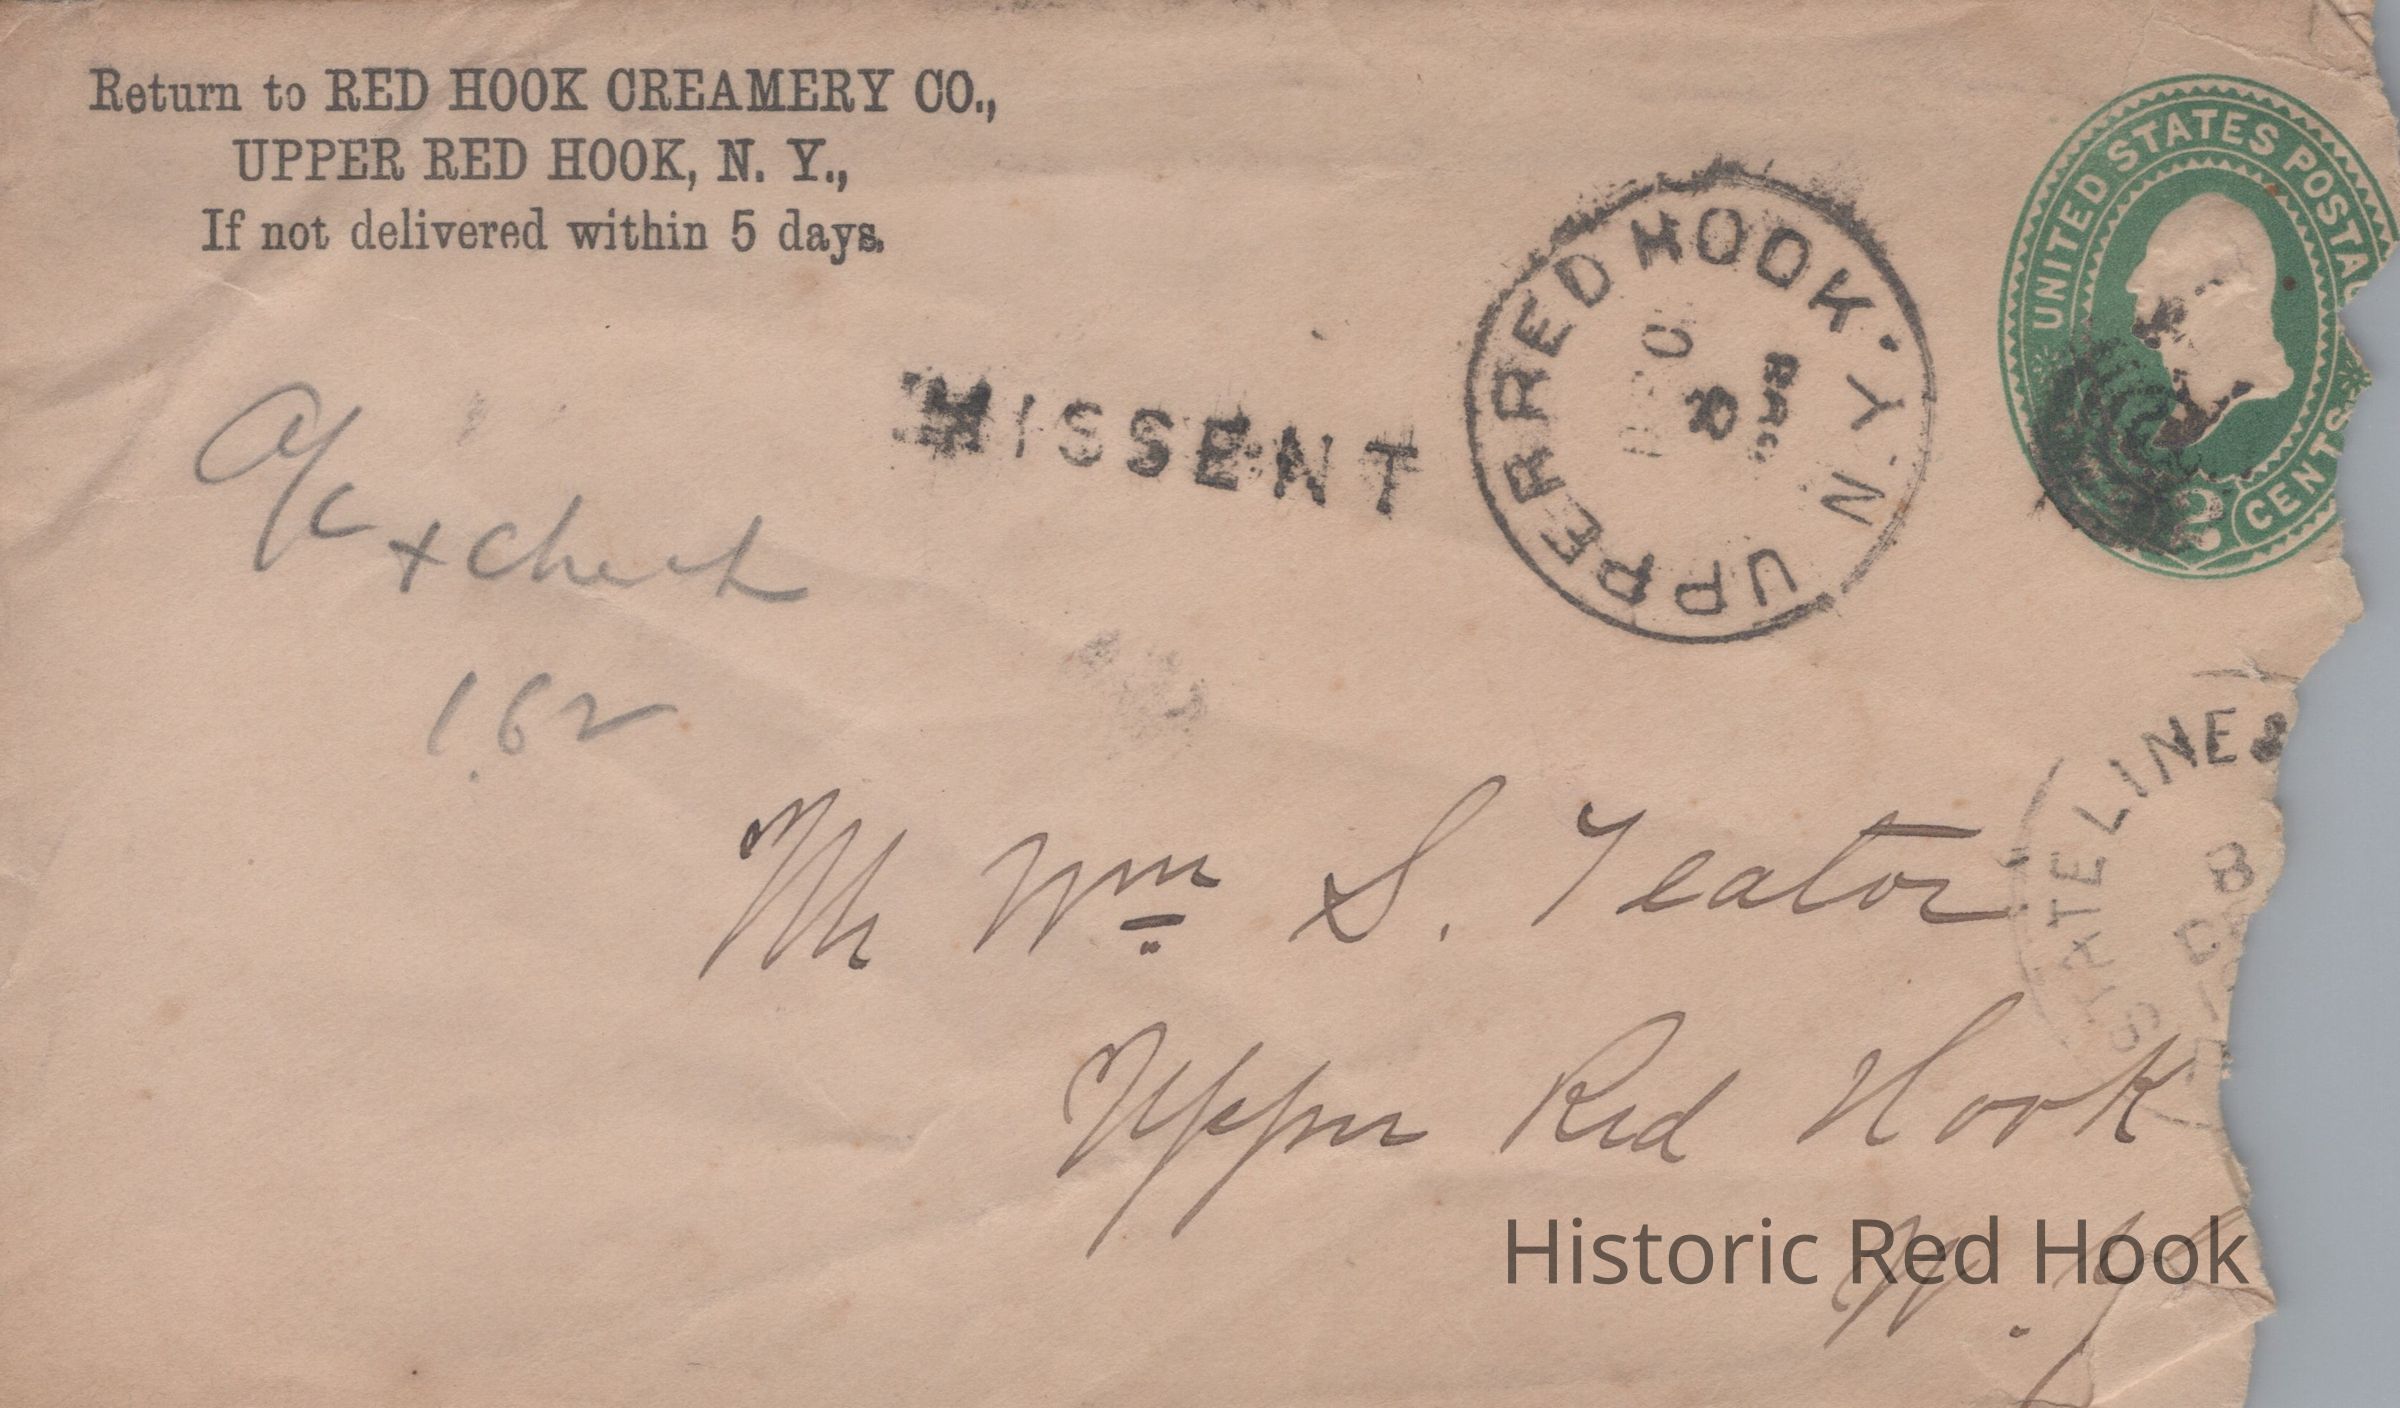 Return to RED HOOK CREAMERY CO.,
UPPER RED HOOK, N. Y.,
If not delivered within 5 days.
UNITED STATES POSTAG
2 CENTS
UPPER RED HOOK. N.Y.
8
MISSENT
a/c + check
162
STATE LINE &
8
Mr Wm S. Teator
Upper Red Hook
N. Y
Historic Red Hook